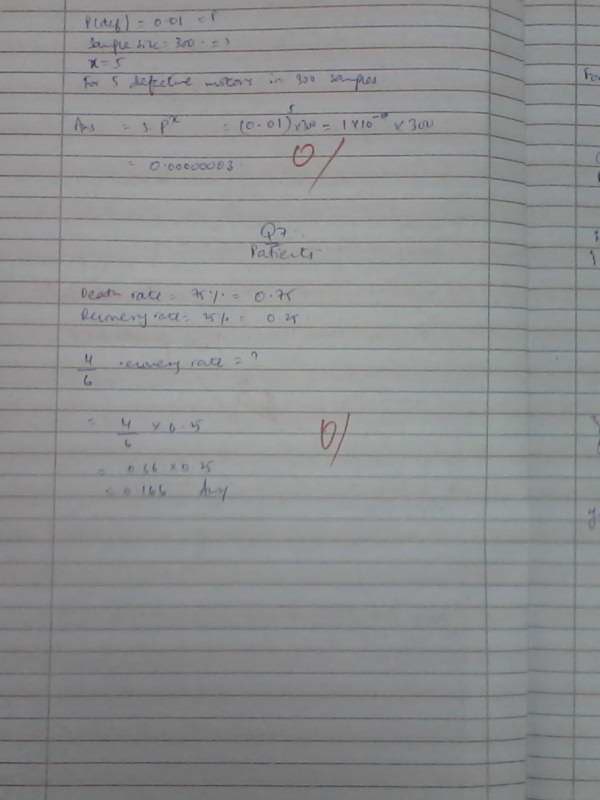 P(def) = 0.01 = P
Sample size = 300 = s
x = 5
For 5 defective motors in 300 samples
Ans = s. Pˣ = (0.01)⁵ × 300 = 1 × 10⁻¹⁰ × 300
= 0.00000003
0/
Q7
Patients
Death rate = 75% = 0.75
Recovery rate = 25% = 0.25
4/6 recovery rate = ?
= 4/6 × 0.25
0/
= 0.66 × 0.25
= 0.166 Ans